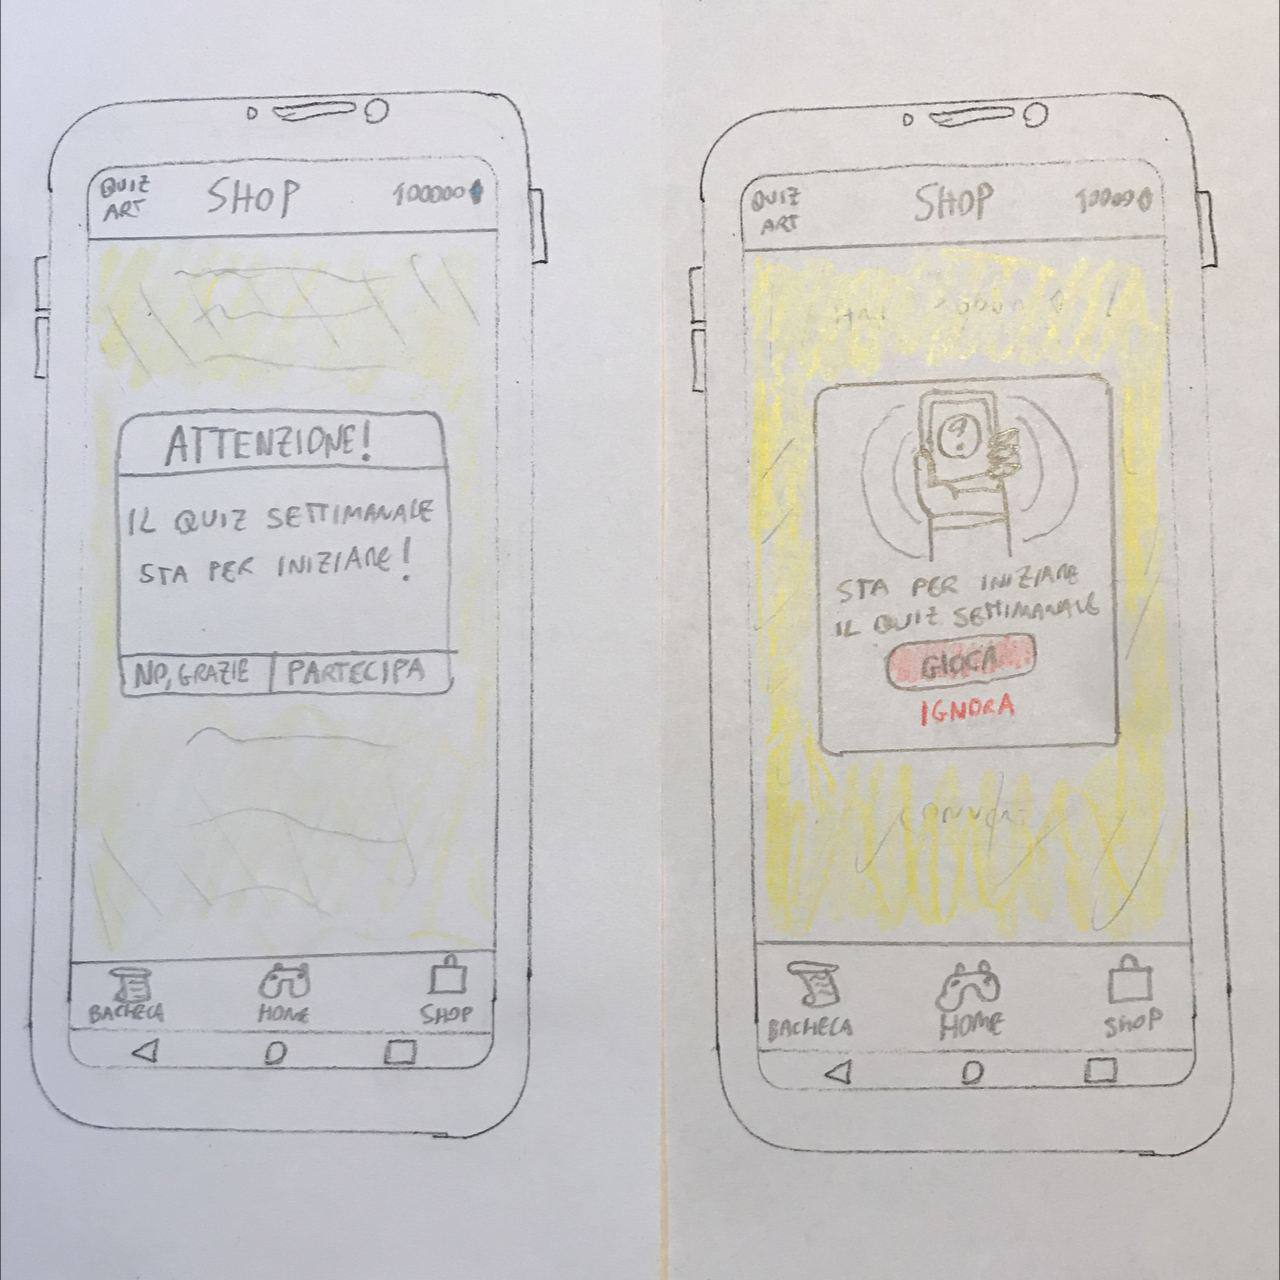 QUIZ
ART
SHOP
100000
ATTENZIONE!
IL QUIZ SETTIMANALE
STA PER INIZIARE!
NO, GRAZIE
PARTECIPA
BACHECA
HOME
SHOP
QUIZ
ART
SHOP
HAI
?
STA PER INIZIARE
IL QUIZ SETTIMANALE
GIOCA
IGNORA
BACHECA
HOME
SHOP